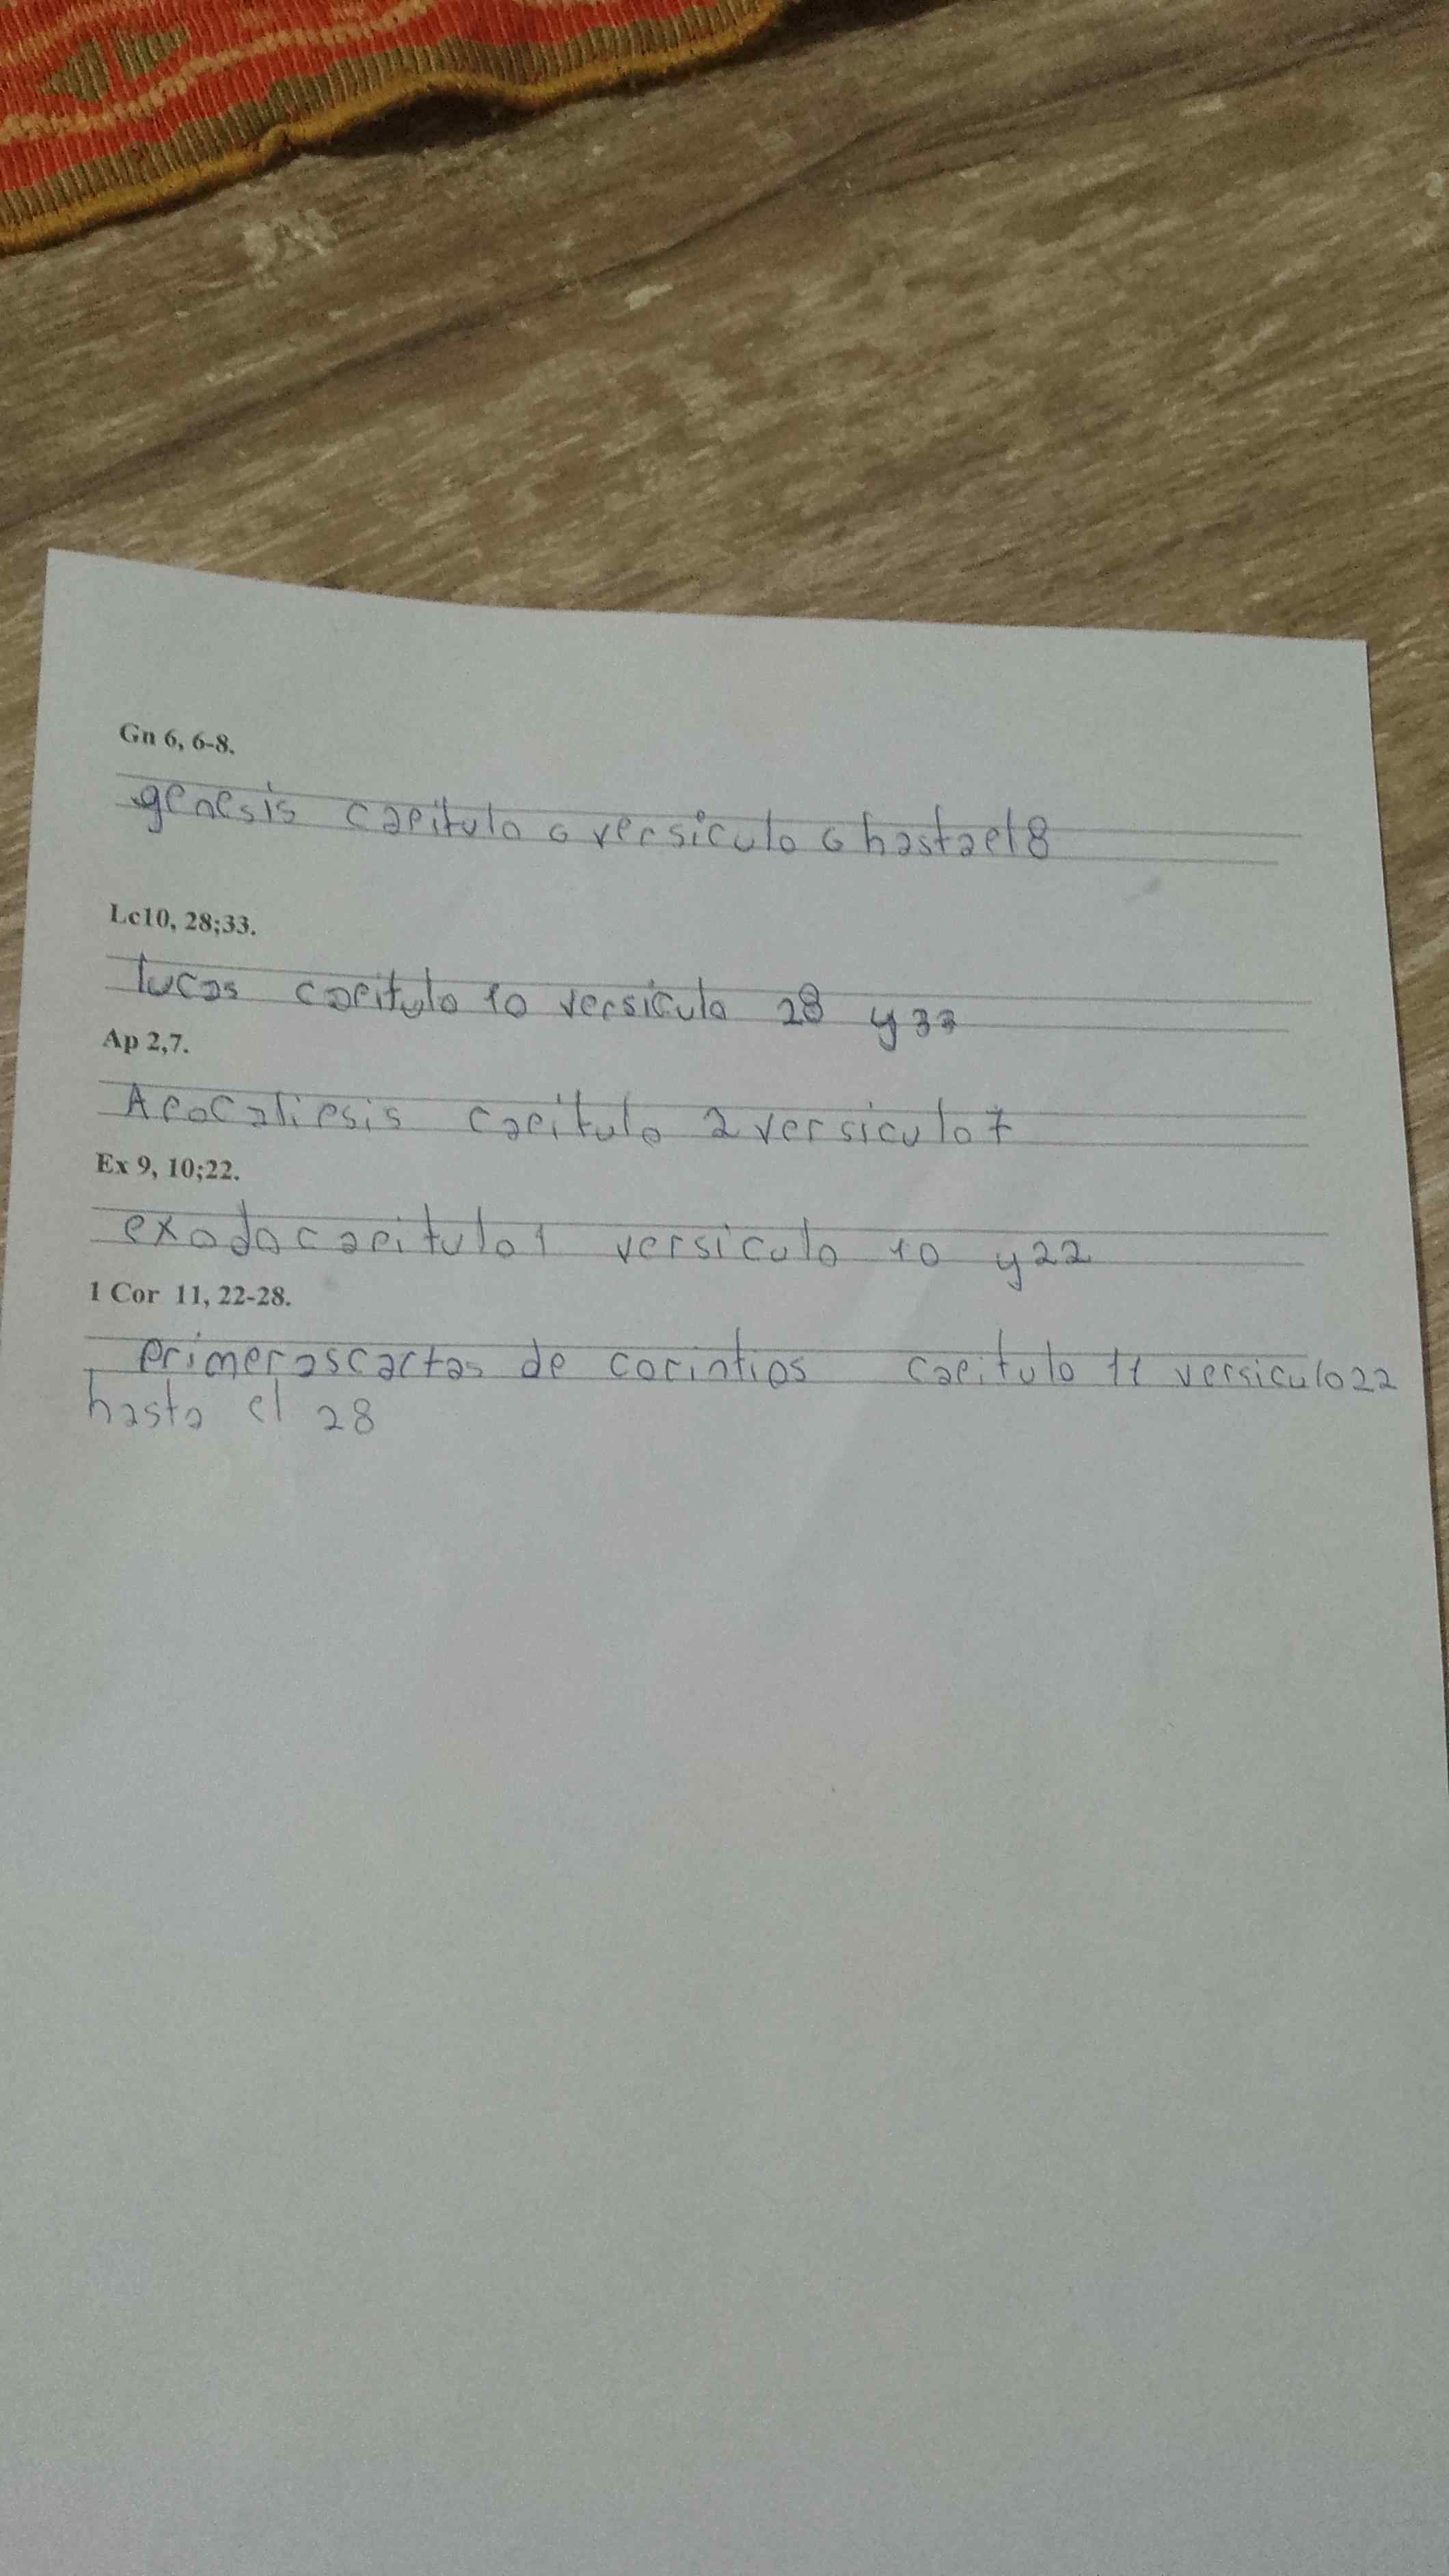 Gn 6, 6-8.
genesis capitulo 6 versiculo 6 hasta el 8
Lc10, 28;33.
lucas capitulo 10 versiculo 28 y 33
Ap 2,7.
Apocalipsis capitulo 2 versiculo 7
Ex 9, 10;22.
exodo capitulo 1 versiculo 10 y 22
1 Cor 11, 22-28.
primeras cartas de corintios capitulo 11 versiculo 22
hasta el 28